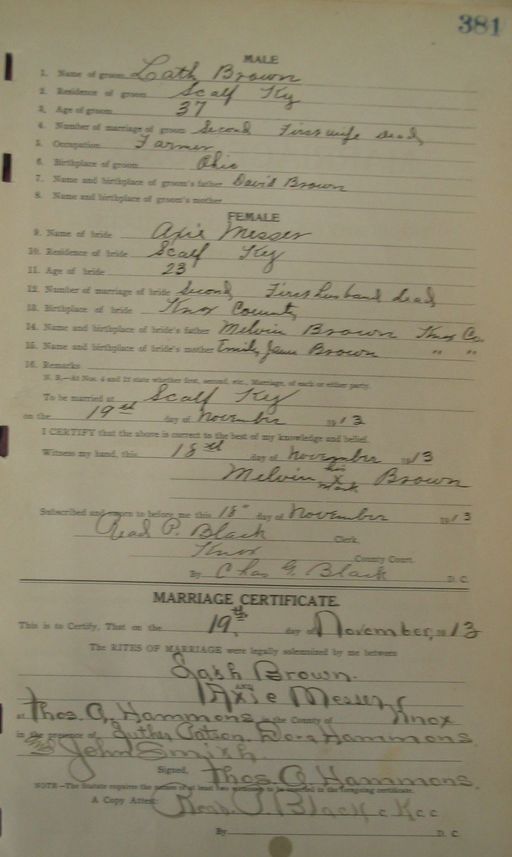 381
MALE
1. Name of groom Lath Brown
2. Residence of groom Scalf Ky
3. Age of groom 37
4. Number of marriage of groom Second First wife dead
5. Occupation Farmer
6. Birthplace of groom Ohio
7. Name and birthplace of groom's father David Brown
8. Name and birthplace of groom's mother
FEMALE
9. Name of bride Axie Messer
10. Residence of bride Scalf Ky
11. Age of bride 23
12. Number of marriage of bride Second First husband dead
13. Birthplace of bride Knox County
14. Name and birthplace of bride's father Melvin Brown Knox Co.
15. Name and birthplace of bride's mother Emily Jane Brown " "
16. Remarks
N. B.—At Nos. 4 and 12 state whether first, second, etc., Marriage, of each or either party.
To be married at Scalf Ky
on the 19th day of November 1913
I CERTIFY that the above is correct to the best of my knowledge and belief.
Witness my hand, this 18th day of November 1913
Melvin his x mark Brown
Subscribed and sworn to before me this 18" day of November 1913
Read P. Black Clerk,
Knox County Court.
By Chas G. Black D. C.
MARRIAGE CERTIFICATE
This is to Certify, That on the 19th day of November, 1913
The RITES OF MARRIAGE were legally solemnized by me between
Lash Brown.
AND Axie Messer
at Thos. G. Hammons in the County of Knox
in the presence of Luther Patson, Dora Hammons
and John Smith.
Signed, Thos. G. Hammons.
NOTE—The Statute requires the names of at least two witnesses to be inserted in the foregoing certificate.
A Copy Attest: Read P. Black
By D. C.